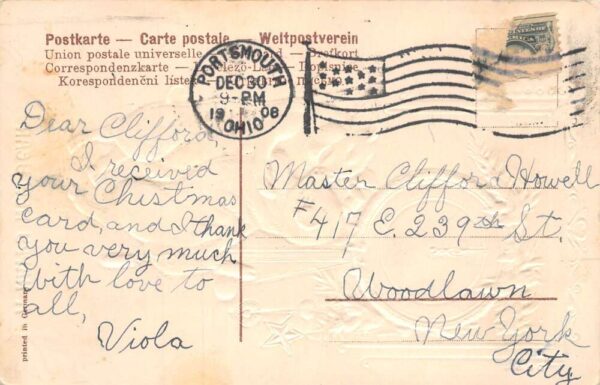 Postkarte — Carte postale — Weltpostverein
Union postale universelle
Correspondenzkarte
Korespondenční
PORTSMOUTH
DEC 30
9-PM
1908
OHIO
Dear Clifford,
I received
your Chistmas
card, and I thank
you very much
With love to
all,
Viola
Master Clifford Howell
#417 E. 239th St.
Woodlawn
New York
City
printed in Germany